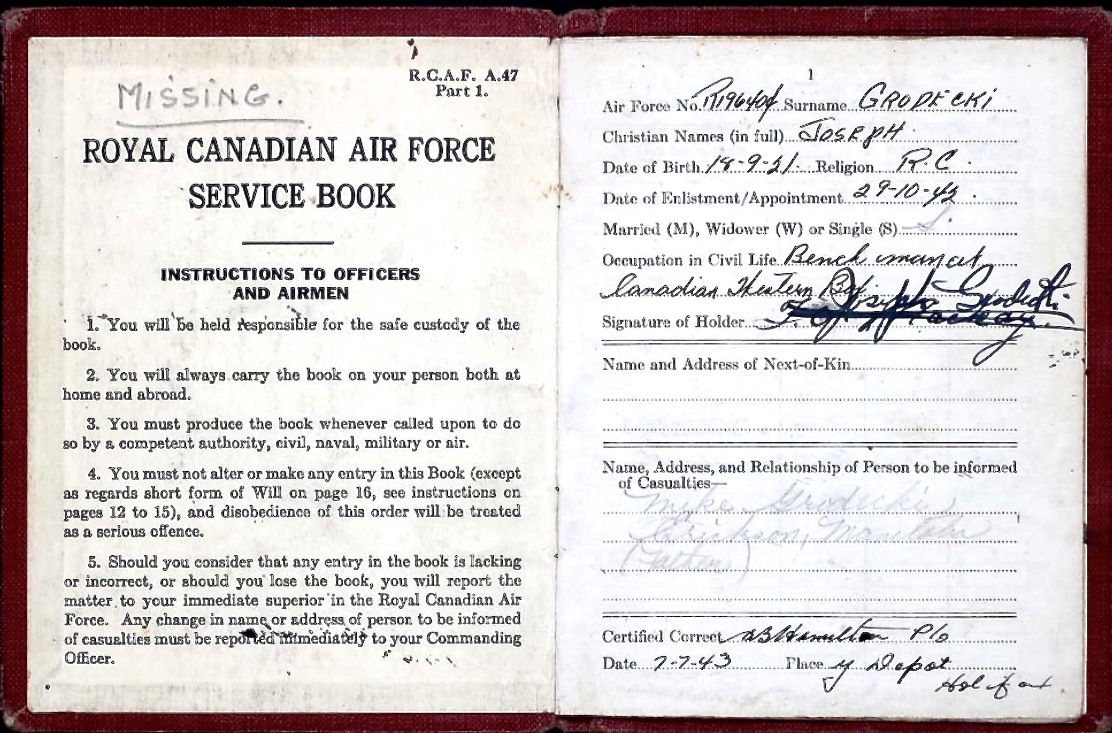 MISSING.
R.C.A.F. A.47
Part 1.
ROYAL CANADIAN AIR FORCE
SERVICE BOOK
INSTRUCTIONS TO OFFICERS
AND AIRMEN
1. You will be held responsible for the safe custody of the
book.
2. You will always carry the book on your person both at
home and abroad.
3. You must produce the book whenever called upon to do
so by a competent authority, civil, naval, military or air.
4. You must not alter or make any entry in this Book (except
as regards short form of Will on page 16, see instructions on
pages 12 to 15), and disobedience of this order will be treated
as a serious offence.
5. Should you consider that any entry in the book is lacking
or incorrect, or should you lose the book, you will report the
matter to your immediate superior in the Royal Canadian Air
Force. Any change in name or address of person to be informed
of casualties must be reported immediately to your Commanding
Officer.
1
Air Force No. R196404 Surname GRODECKI
Christian Names (in full) JOSEPH
Date of Birth 18-9-21 Religion R.C.
Date of Enlistment/Appointment 29-10-42
Married (M), Widower (W) or Single (S) S.
Occupation in Civil Life Bench
Canadian Western Box
Signature of Holder Joseph Grodecki
Name and Address of Next-of-Kin
Name, Address, and Relationship of Person to be informed
of Casualties—
Mike Grodecki
Erickson, Manitoba
(Father)
Certified Correct Hamilton P/o
Date 7-7-43 Place Y Depot
Halifax